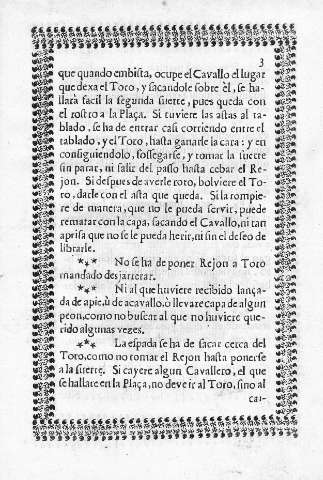 3
que quando embista, ocupe el Cavallo el lugar
que dexa el Toro, y sacandole sobre èl, se ha-
llarà facil la segunda suerte, pues queda con
el rostro a la Plaça. Si tuviere las astas al ta-
blado, se ha de entrar casi corriendo entre el
tablado, y el Toro, hasta ganarle la cara: y en
consiguiendolo, sossegarse, y tomar la suerte
sin parar, ni salir del passo hasta cebar el Re-
jon. Si despues de averle roto, bolviere el To-
ro, darle con el asta que queda. Si la rompie-
re de manera, que no le pueda servir, puede
rematar con la capa, sacando el Cavallo, ni tan
aprisa que no se le pueda herir, ni sin el deseo de
librarle.
*** No se ha de poner Rejon a Toro
mandado desjarretar.
*** Ni al que huviere recibido lança-
da de apie, ù de acavallo, ò llevare capa de algun
peon, como no buscar al que no huviere que-
rido algunas vezes.
*** La espada se ha de sacar cerca del
Toro, como no tomar el Rejon hasta ponerse
a la suerte. Si cayere algun Cavallero, el que
se hallare en la Plaça, no deve ir al Toro, sino al
cai-